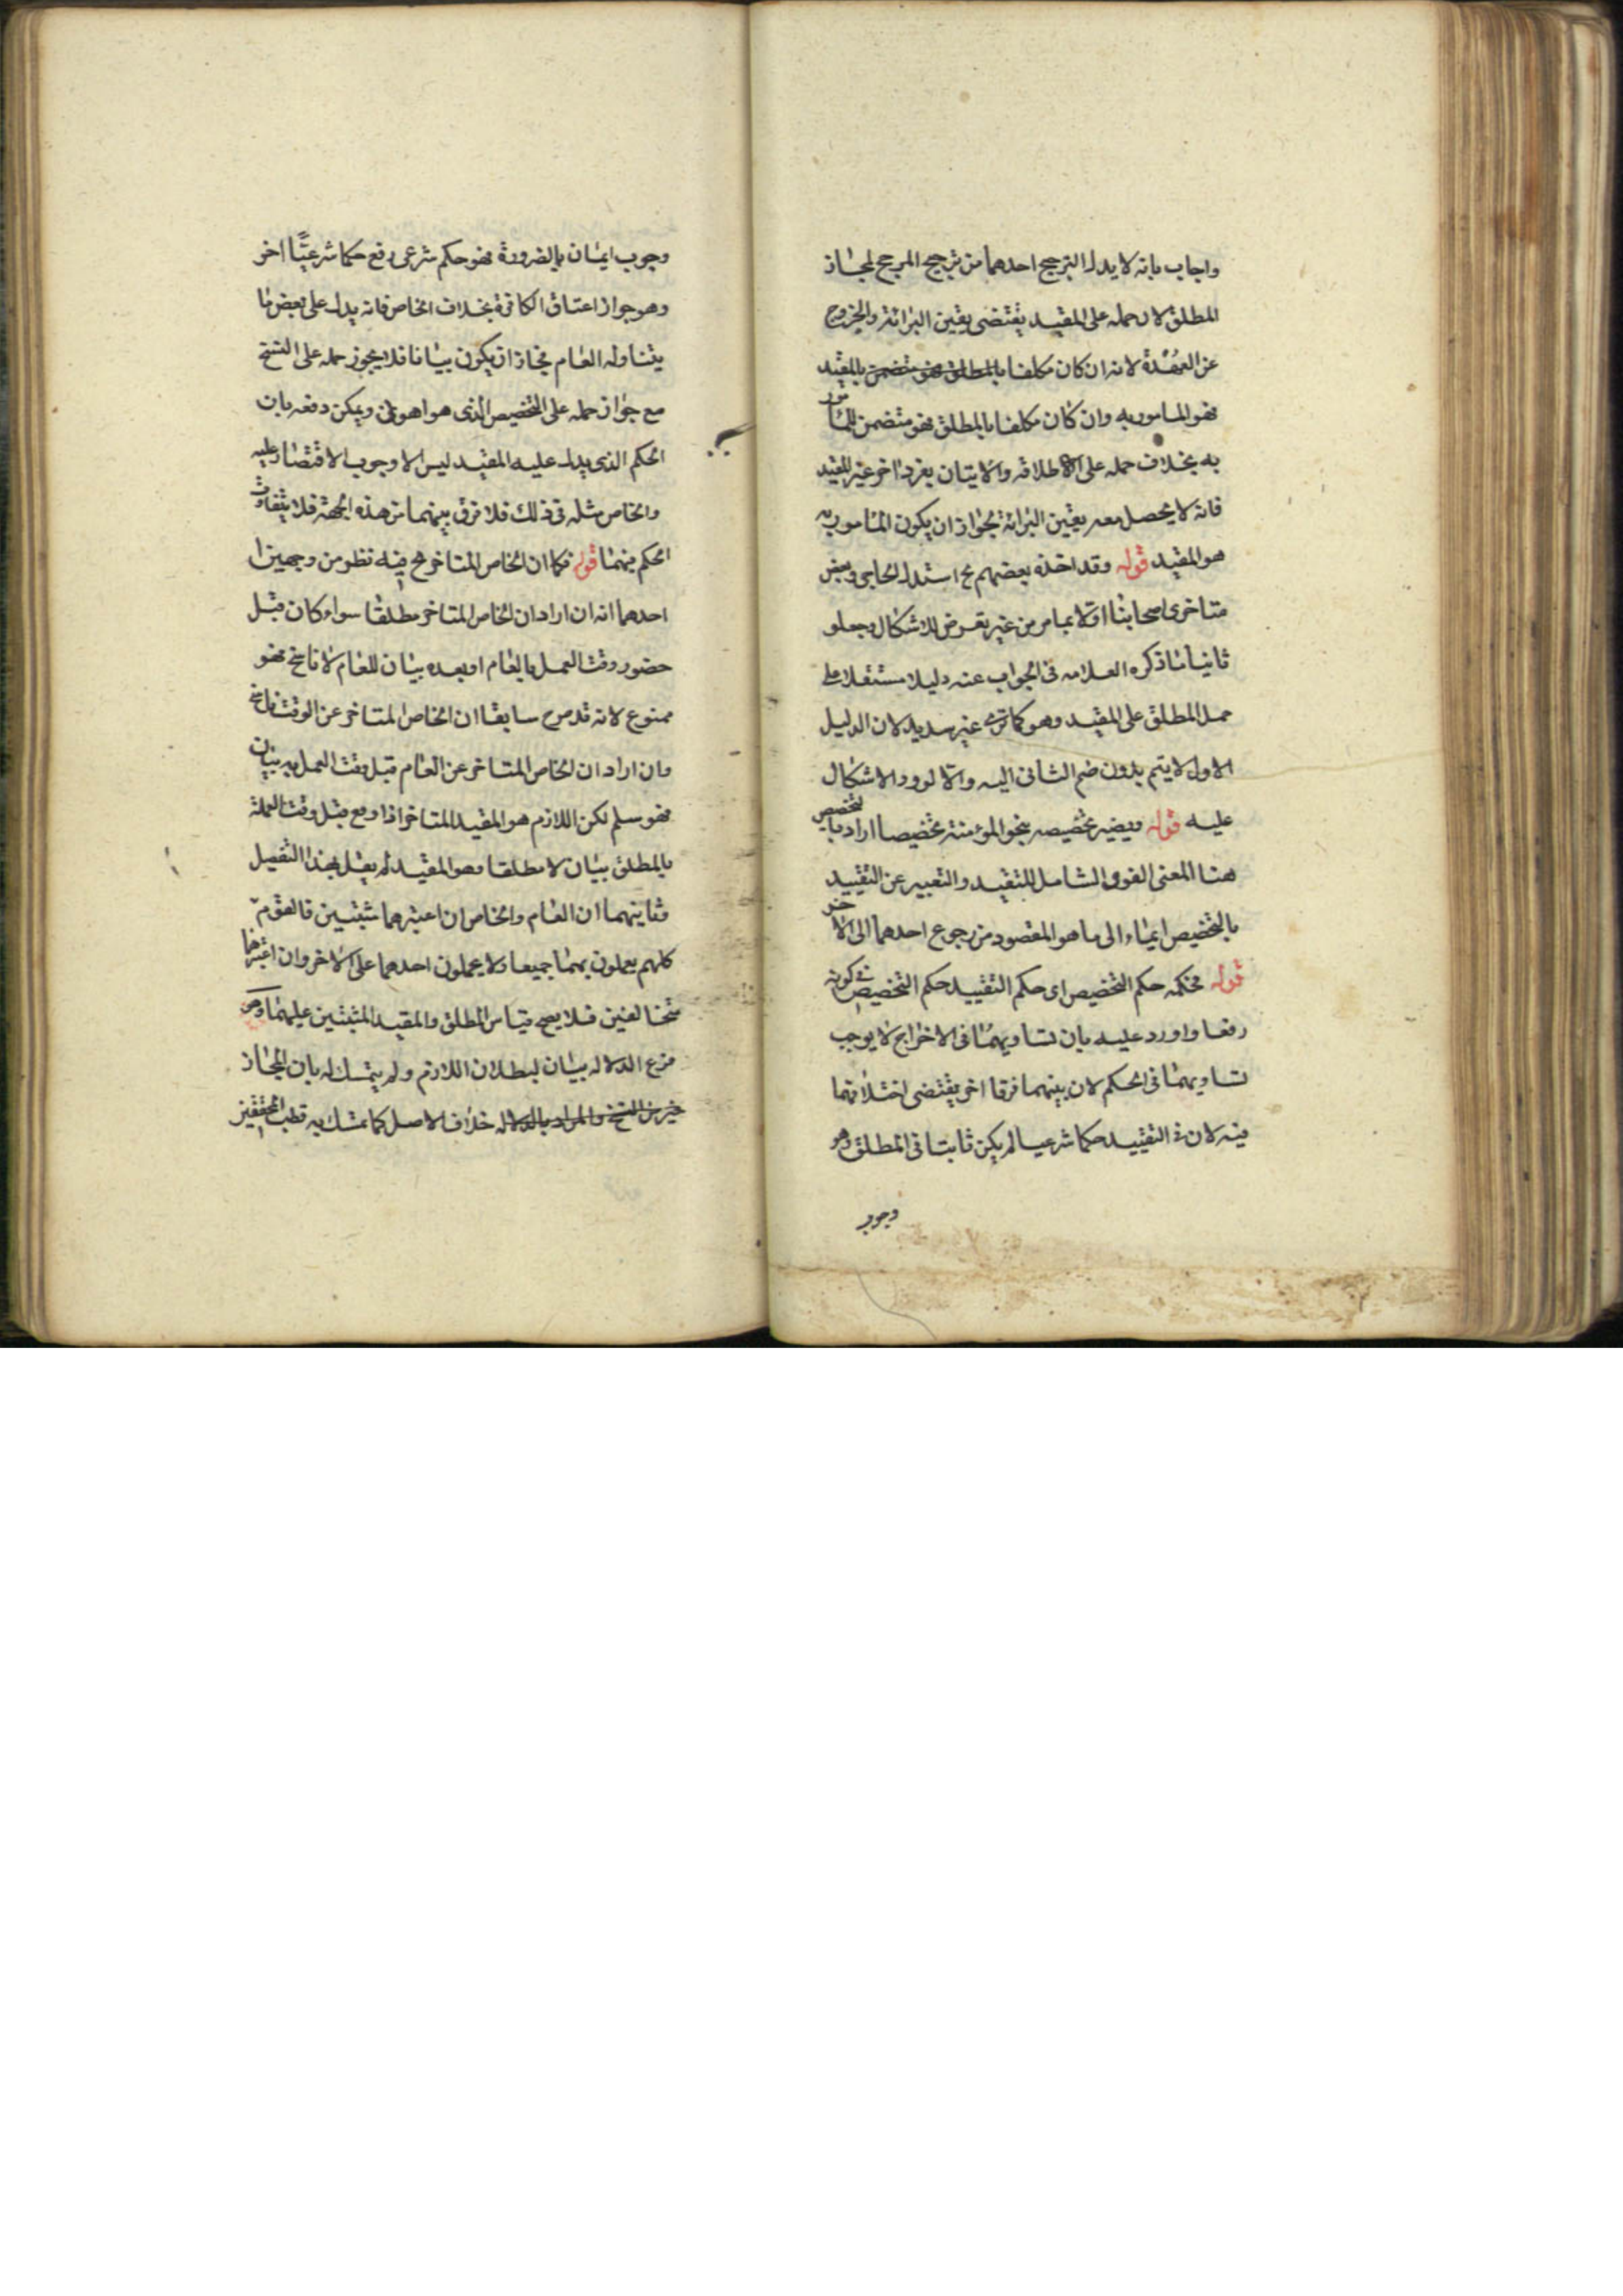 واجاب بانه لا يدل الترجيح احدهما من ترجيح المرجح لمجاز
المطلق لان حمله على المقيد يقتضى يقين البرائة والخروج
عن العهدة لانه ان كان مكلفا بالمطلق فهو متضمن بالمقيد
فهو المامور به وان كان مكلفا بالمطلق فهو متضمن للمامور
به بخلاف حمله على الاطلاقه والاتيان بفرد اخر غير المقيد
فانه لا يحصل معه يقين البرائة لجواز ان يكون المامور به
هو المقيد قوله وقد اخذه بعضهم مح استدل الحاجى وبعض
متاخرى اصحابنا اولا بما مر من غير تعرض للاشكال وجعلو
ثانيا ما ذكره العلامه فى الجواب عنه دليلا مستقلا على
حمل المطلق على المقيد وهو كما ترى غير سديد لان الدليل
الاول لا يتم بدون ضم الثانى اليه والا لورود الاشكال
عليه قوله ويصير تخصيصه بنحو المؤمنة تخصيصا اراد بالتخصيص
هنا المعنى اللغوى الشامل للتقيد والتعبير عن التقييد
بالتخصيص ايماء الى ما هو المقصود من رجوع احدهما الى الاخر
قوله فحكمه حكم التخصيص اى حكم التقييد حكم التخصيص فى كونه
رفعا واورد عليه بان تساويهما فى الاخراج لا يوجب
تساويهما فى الحكم لان بينهما فرقا اخر يقتضى اختلافهما
فيه لان فى التقييد حكما شرعيا لم يكن ثابتا فى المطلق وهو
وجوب
وجوب ايمان بالضرورة فهو حكم شرعى رفع حكما شرعيا اخر
وهو جواز اعتاق الكافرة بخلاف الخاص فانه يدل على بعض ما
يتناوله العام فجاز ان يكون بيانا فلا يجوز حمله على النسخ
مع جواز حمله على التخصيص الذى هو اهون ويمكن دفعه بان
الحكم الذى يدل عليه المقيد ليس الا وجوب الاقتصار عليه
والخاص مثله فى ذلك فلا فرق بينهما من هذه الجهة فلا يتفاوت
الحكم فيهما قوله فكما ان الخاص المتاخر مح فيه نظر من وجهين
احدهما انه ان اراد ان الخاص المتاخر مطلقا سواء كان قبل
حضور وقت العمل بالعام او بعده بيان للعام لا ناسخ فهو
ممنوع لانه قد صرح سابقا ان الخاص المتاخر عن الوقت ناسخ
وان اراد ان الخاص المتاخر عن العام قبل وقت العمل به بيان
فهو سلم لكن اللازم هو المقيد المتاخر اذا وقع قبل وقت العمل
بالمطلق بيان لا مطلقا وهو المقيد لم يقل بهذا التفصيل
وثانيهما ان العام والخاص ان اعتبرهما مثبتين فالقوم
كلهم يعملون بهما جميعا ولا يحملون احدهما على الاخر وان اعتبرهما
متخالفين فلا يصح قياس المطلق والمقيد المثبتين عليهما
فرع الدلاله بيان لبطلان اللازم ولم يتمسك له بان المجاز
خير من النسخ والمراد بالدلاله خلاف الاصل كما تمسك به قطب المحققين